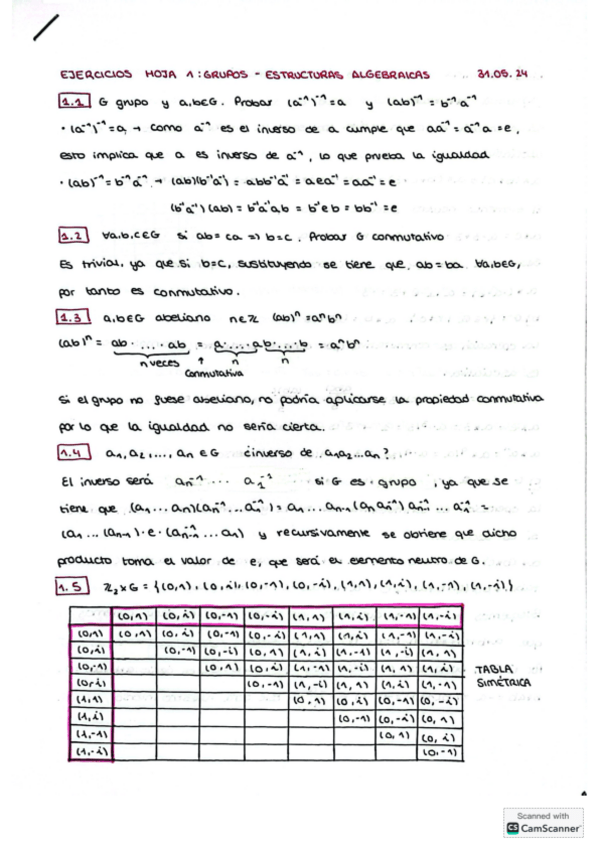 EJERCICIOS HOJA 1: GRUPOS - ESTRUCTURAS ALGEBRAICAS 31.05.24
1.1 G grupo y a,b∈G. Probar (a⁻¹)⁻¹=a y (ab)⁻¹ = b⁻¹a⁻¹
· (a⁻¹)⁻¹=a, → como a⁻¹ es el inverso de a cumple que aa⁻¹=a⁻¹a=e,
esto implica que a es inverso de a⁻¹, lo que prueba la igualdad
· (ab)⁻¹=b⁻¹a⁻¹ → (ab)(b⁻¹a⁻¹) = abb⁻¹a⁻¹ = aea⁻¹ = aa⁻¹ = e
(b⁻¹a⁻¹)(ab) = b⁻¹a⁻¹ab = b⁻¹eb = bb⁻¹ = e
1.2 ∀a,b,c∈G si ab=ca ⇒ b=c. Probar G conmutativo
Es trivial, ya que si b=c, sustituyendo se tiene que ab=ba ∀a,b∈G,
por tanto es conmutativo.
1.3 a,b∈G abeliano n∈ℤ (ab)ⁿ=aⁿbⁿ
(ab)ⁿ = ab · ... · ab = a · ... · a b · ... · b = aⁿbⁿ
n veces ↑ n n
Conmutativa
Si el grupo no fuese abeliano, no podría aplicarse la propiedad conmutativa
por lo que la igualdad no sería cierta.
1.4 a₁, a₂, ..., aₙ ∈ G ¿inverso de a₁a₂...aₙ?
El inverso será aₙ⁻¹ ... a₁⁻¹ si G es grupo, ya que se
tiene que (a₁ ... aₙ)(aₙ⁻¹ ... a₁⁻¹) = a₁ ... aₙ₋₁ (aₙ aₙ⁻¹) aₙ₋₁⁻¹ ... a₁⁻¹ =
(a₁ ... (aₙ₋₁) · e · (aₙ₋₁⁻¹ ... a₁) y recursivamente se obtiene que dicho
producto toma el valor de e, que será el elemento neutro de G.
1.5 ℤ₂×G = {(0,1), (0,i), (0,-1), (0,-i), (1,1), (1,i), (1,-1), (1,-i)}
(0,1) (0,i) (0,-1) (0,-i) (1,1) (1,i) (1,-1) (1,-i)
(0,1) (0,1) (0,i) (0,-1) (0,-i) (1,1) (1,i) (1,-1) (1,-i)
(0,i) (0,-1) (0,-i) (0,1) (1,i) (1,-1) (1,-i) (1,1)
(0,-1) (0,1) (0,i) (1,-1) (1,-i) (1,1) (1,i) TABLA
(0,-i) (0,-1) (1,-i) (1,1) (1,i) (1,-1) SIMÉTRICA
(1,1) (0,1) (0,i) (0,-1) (0,-i)
(1,i) (0,-1) (0,-i) (0,1)
(1,-1) (0,1) (0,i)
(1,-i) (0,-1)
Scanned with
CS CamScanner